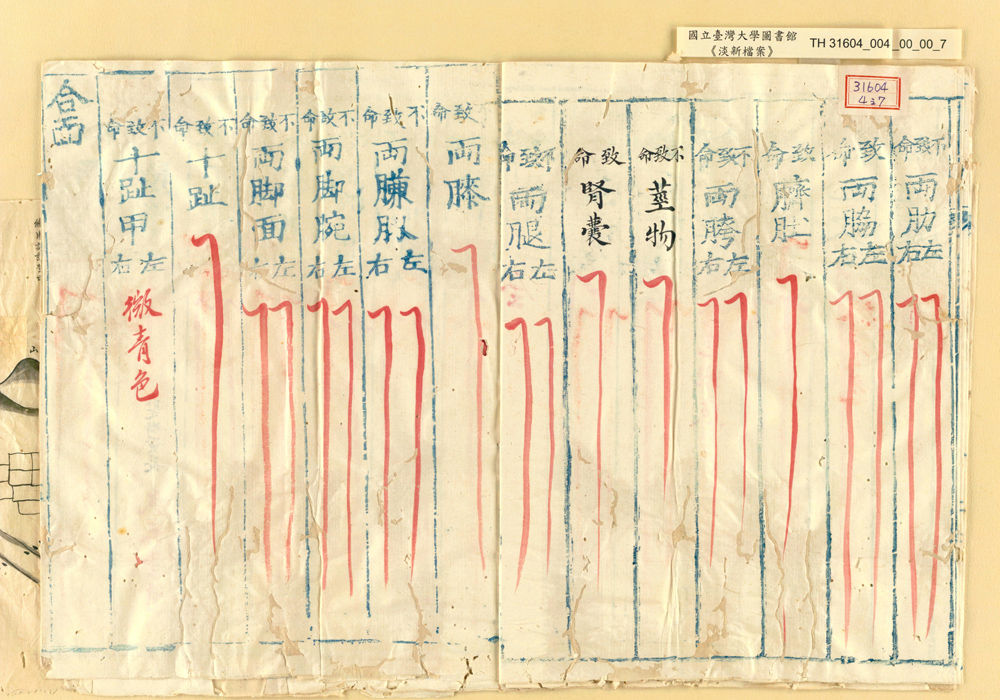 國立臺灣大學圖書館
《淡新檔案》
TH 31604_004_00_00_7
31604
4:7
不致命
両肋左右
致命
両脇左右
致命
臍肚
不致命
両胯左右
不致命
莖物
致命
腎囊
不致命
両腿左右
致命
両膝
不致命
両臁肕左右
不致命
両脚腕左右
不致命
両脚面左右
不致命
十趾
不致命
十趾甲左右
微青色
合面